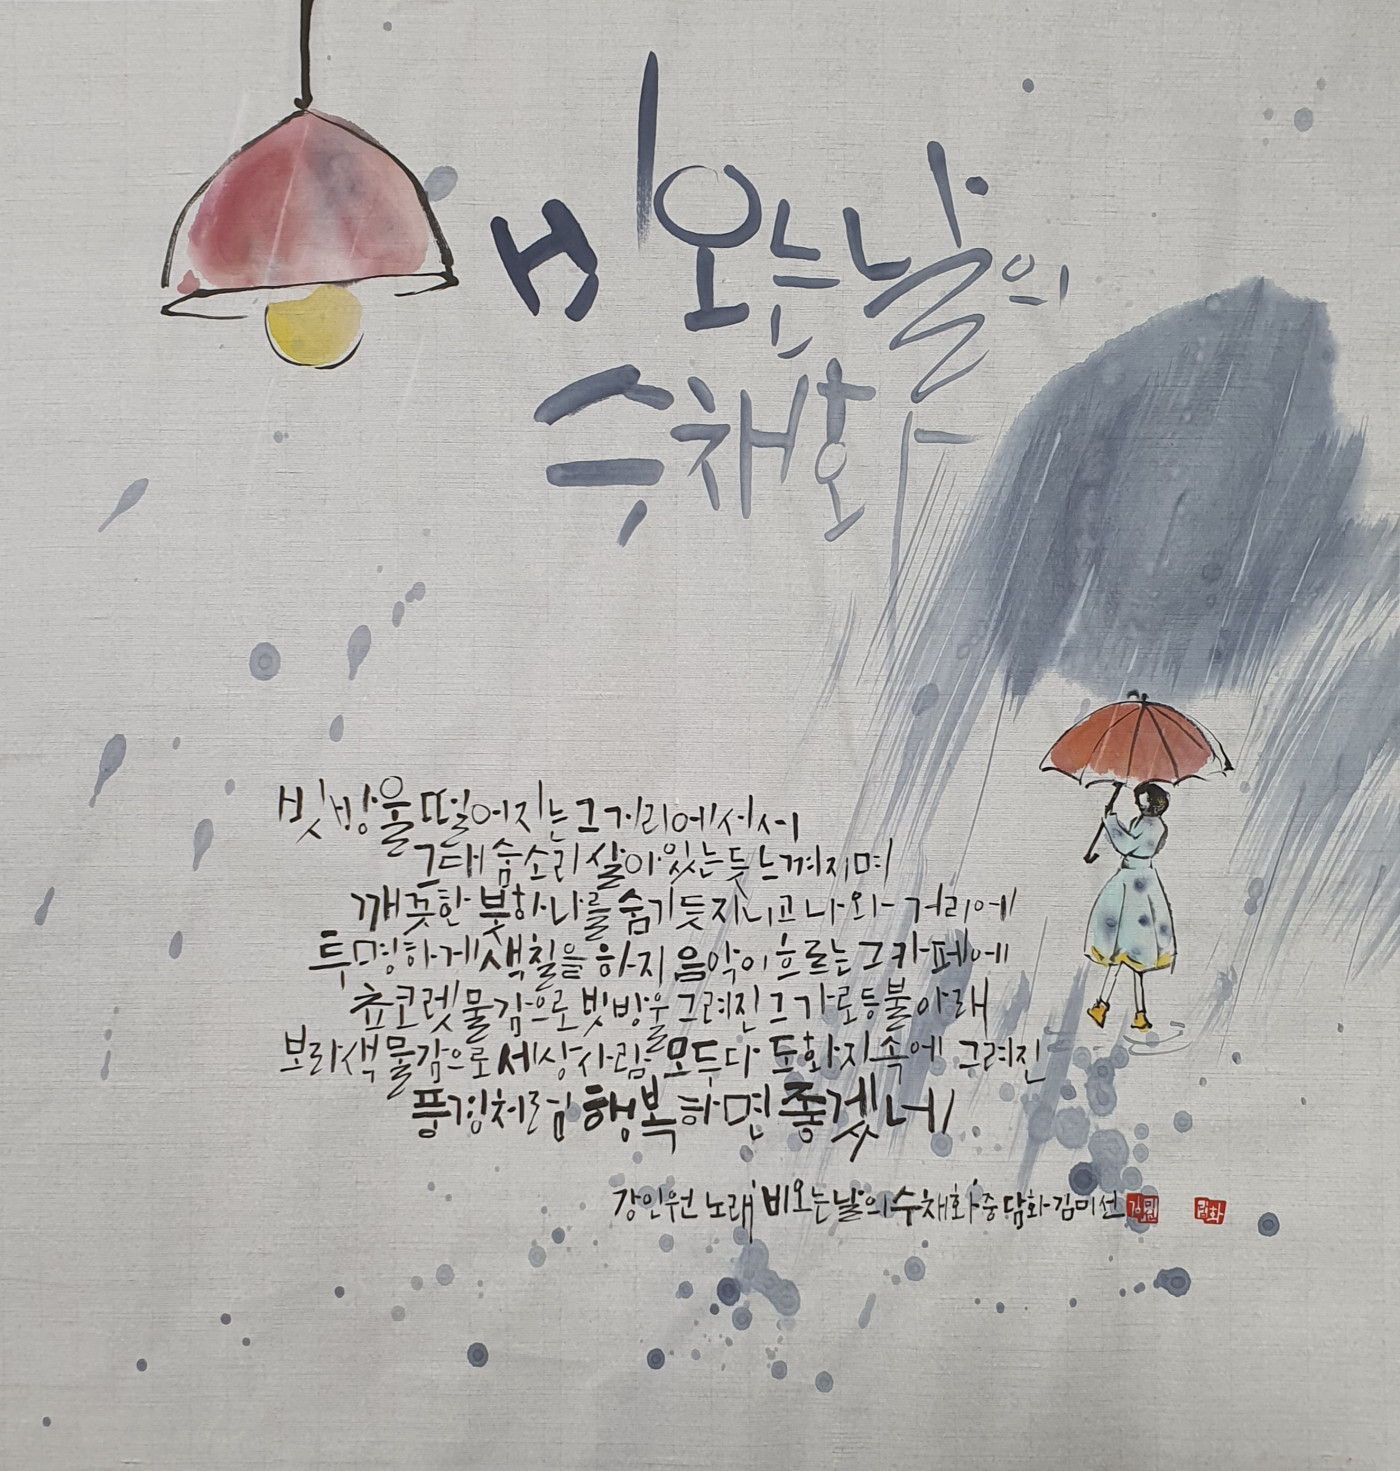 비오는날의
수채화
빗방울 떨어지는 그 거리에 서서
그대 숨소리 살아있는 듯 느껴지며
깨끗한 붓 하나를 숨기듯 지니고 나와 거리에
투명하게 색칠을 하지 음악이 흐르는 그 카페에
쵸코렛 물감으로 빗방울 그려진 그 가로등불 아래
보라색 물감으로 세상사람 모두다 도화지 속에 그려진
풍경처럼 행복하면 좋겠네
강인원 노래 '비오는날의 수채화' 중 담화 김미선
담화